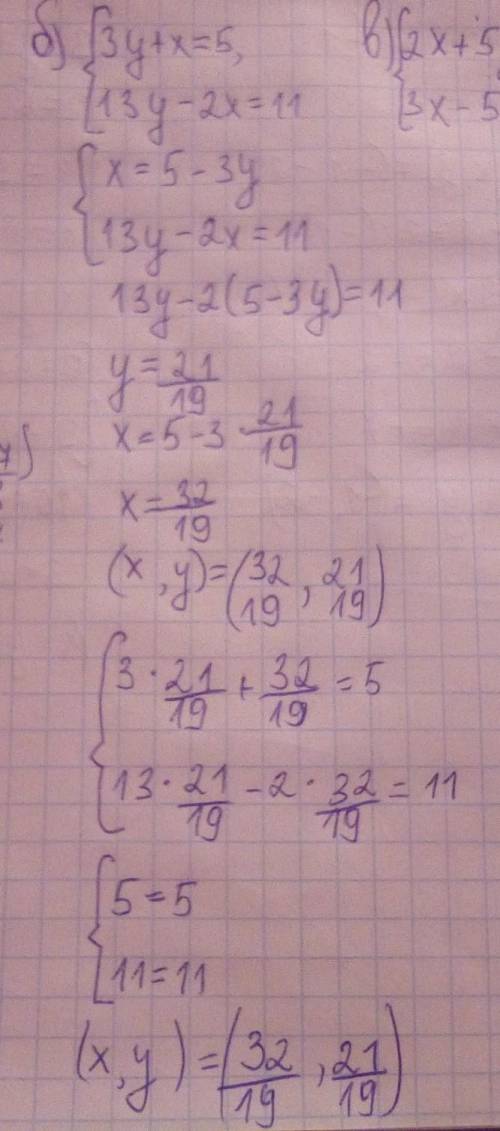 б) {3y+x=5, в) {2x+5
{13y-2x=11 {3x-5
{x=5-3y
{13y-2x=11
13y-2(5-3y)=11
y=21/19
x=5-3·21/19
x=32/19
(x,y)=(32/19, 21/19)
{3·21/19+32/19=5
{13·21/19-2·32/19=11
{5=5
{11=11
(x,y)=(32/19, 21/19)